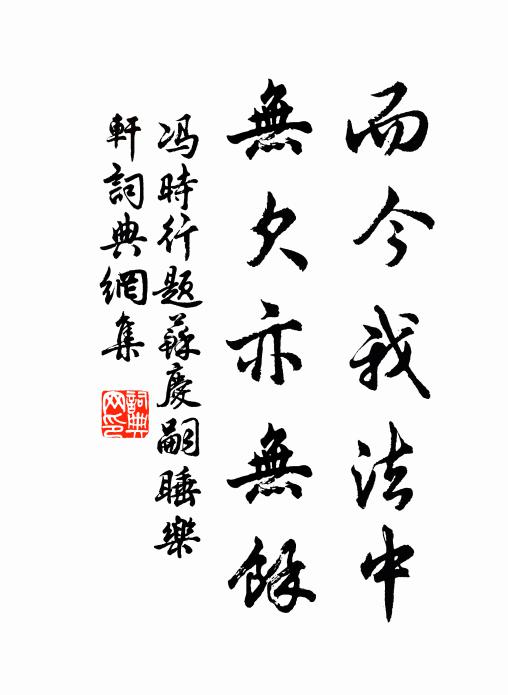 而今我法中
無欠亦無餘
冯時行题蘇慶嗣睡樂
軒詞典網集
詞典
网印